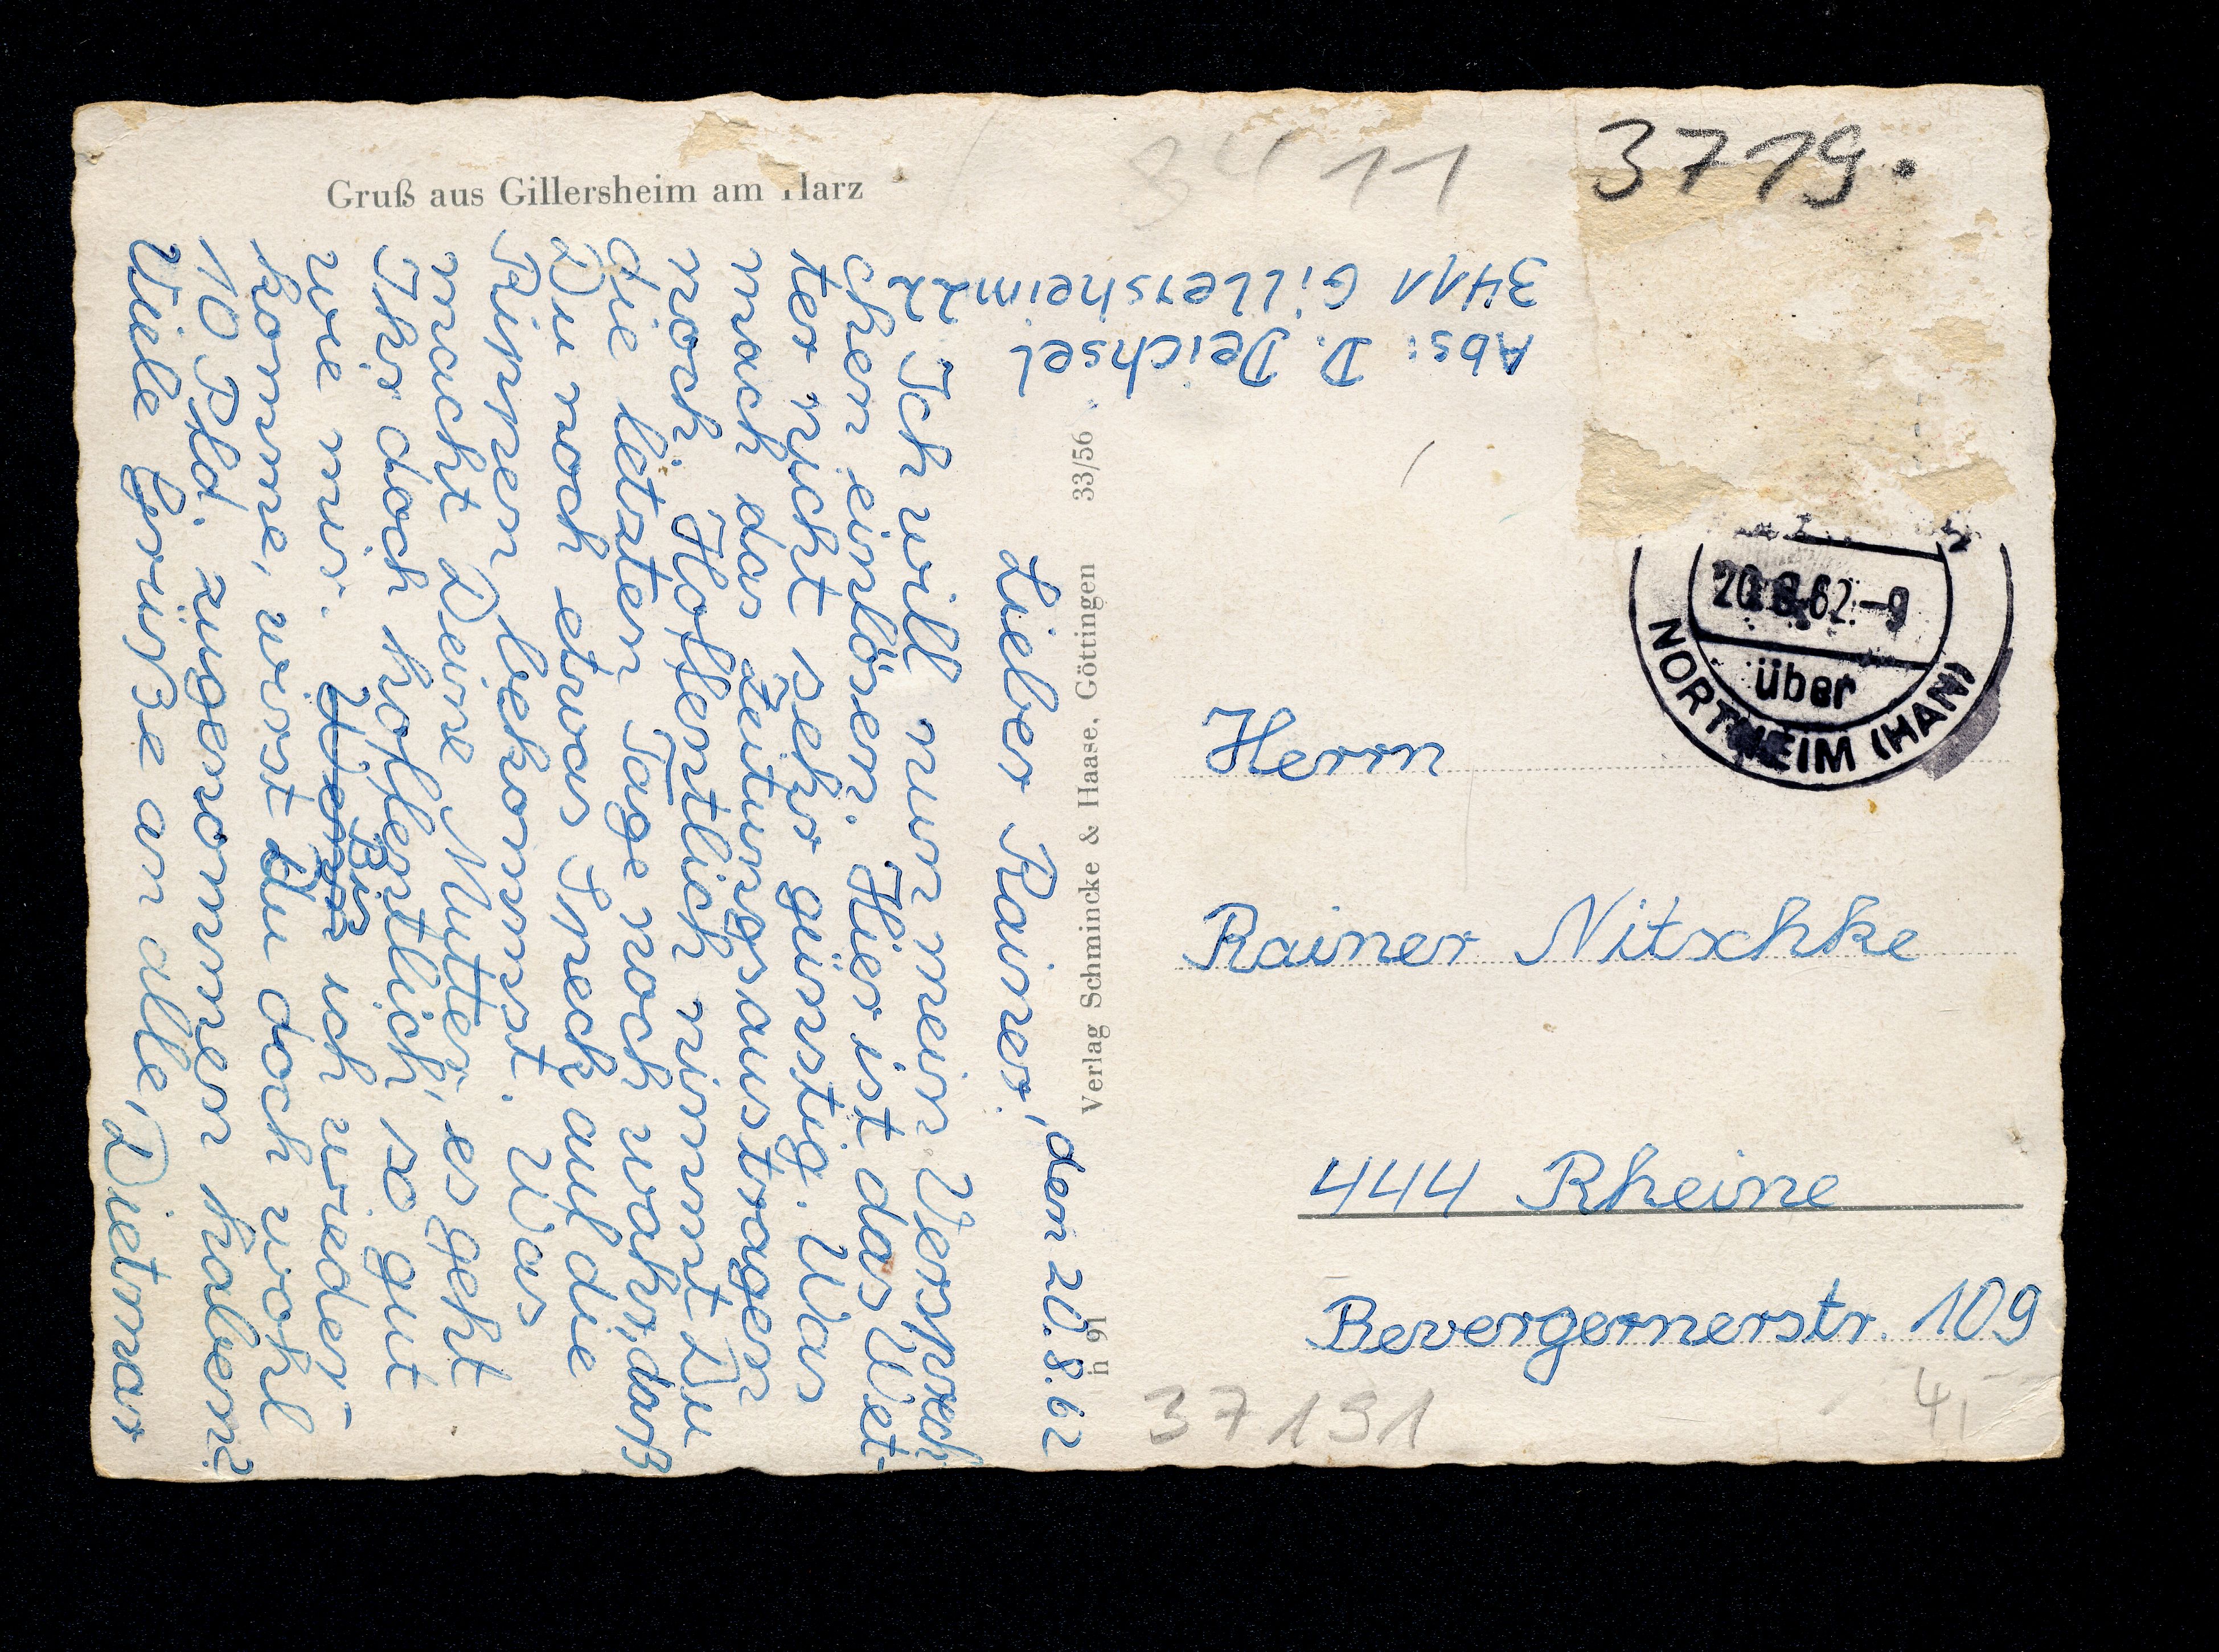 Gruß aus Gillersheim am Harz
3411
3719.
Abs: D. Deichsel
3411 Gillersheim 22
, den 20.8.62
Lieber Rainer!
Ich will nur mein Versprech
chen einlösen. Hier ist das Wet-
ter nicht sehr günstig. Was
mach das Zeitungsaustragen
noch. Hoffentlich nimmt Du
die letzten Tage noch wahr, daß
Du noch etwas Speck auf die
Rippen bekommst. Was
macht Deine Mutter, es geht
Ihr doch hoffentlich, so gut
wie mir. Wenn Bin ich wieder-
komme, wirst Du doch wohl
10 Pfd. zugenommen haben?
Viele Grüße an alle, Dietmar
Verlag Schmincke & Haase, Göttingen 33/56
h 91
20.8.62.-9
über
NORTHEIM (HAN)
Herrn
Rainer Nitschke
444 Rheine
Bevergernerstr. 109
37191
4,-